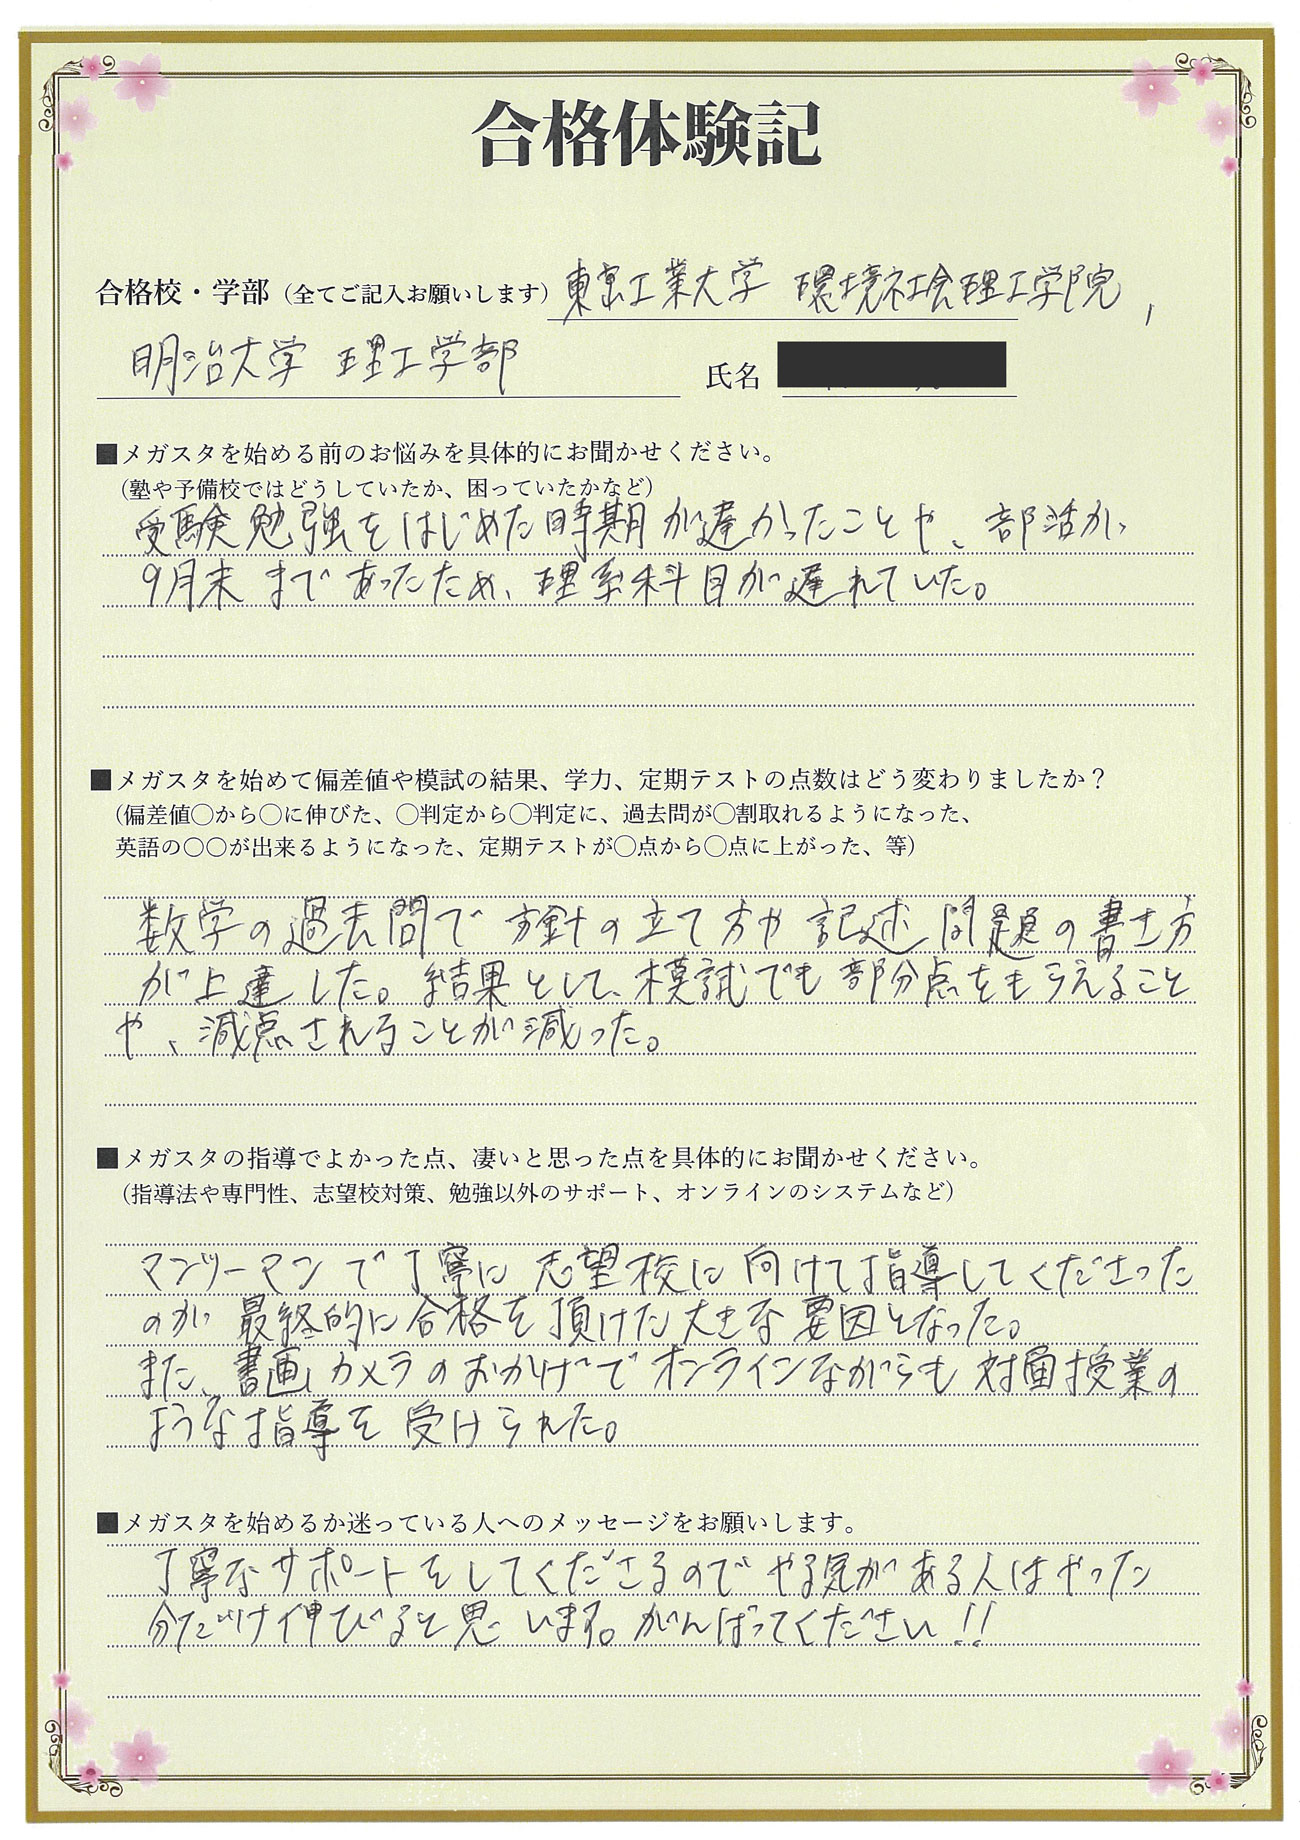 合格体験記
合格校・学部（全てご記入お願いします）東京工業大学 環境社会理工学院,
明治大学 理工学部 氏名
■メガスタを始める前のお悩みを具体的にお聞かせください。
（塾や予備校ではどうしていたか、困っていたかなど）
受験勉強をはじめた時期が遅かったことや、部活が
9月末まであったため、理系科目が遅れていた。
■メガスタを始めて偏差値や模試の結果、学力、定期テストの点数はどう変わりましたか？
（偏差値○から○に伸びた、○判定から○判定に、過去問が○割取れるようになった、
英語の○○が出来るようになった、定期テストが○点から○点に上がった、等）
数学の過去問で方針の立て方や記述問題の書き方
が上達した。結果として、模試でも部分点をもらえること
や、減点されることが減った。
■メガスタの指導でよかった点、凄いと思った点を具体的にお聞かせください。
（指導法や専門性、志望校対策、勉強以外のサポート、オンラインのシステムなど）
マンツーマンで丁寧に志望校に向けて指導してくださった
のが最終的に合格を頂けた大きな要因となった。
また、書画カメラのおかげでオンラインながらも対面授業の
ような指導を受けられた。
■メガスタを始めるか迷っている人へのメッセージをお願いします。
丁寧なサポートをしてくださるのでやる気がある人はやった
分だけ伸びると思います。がんばってください!!